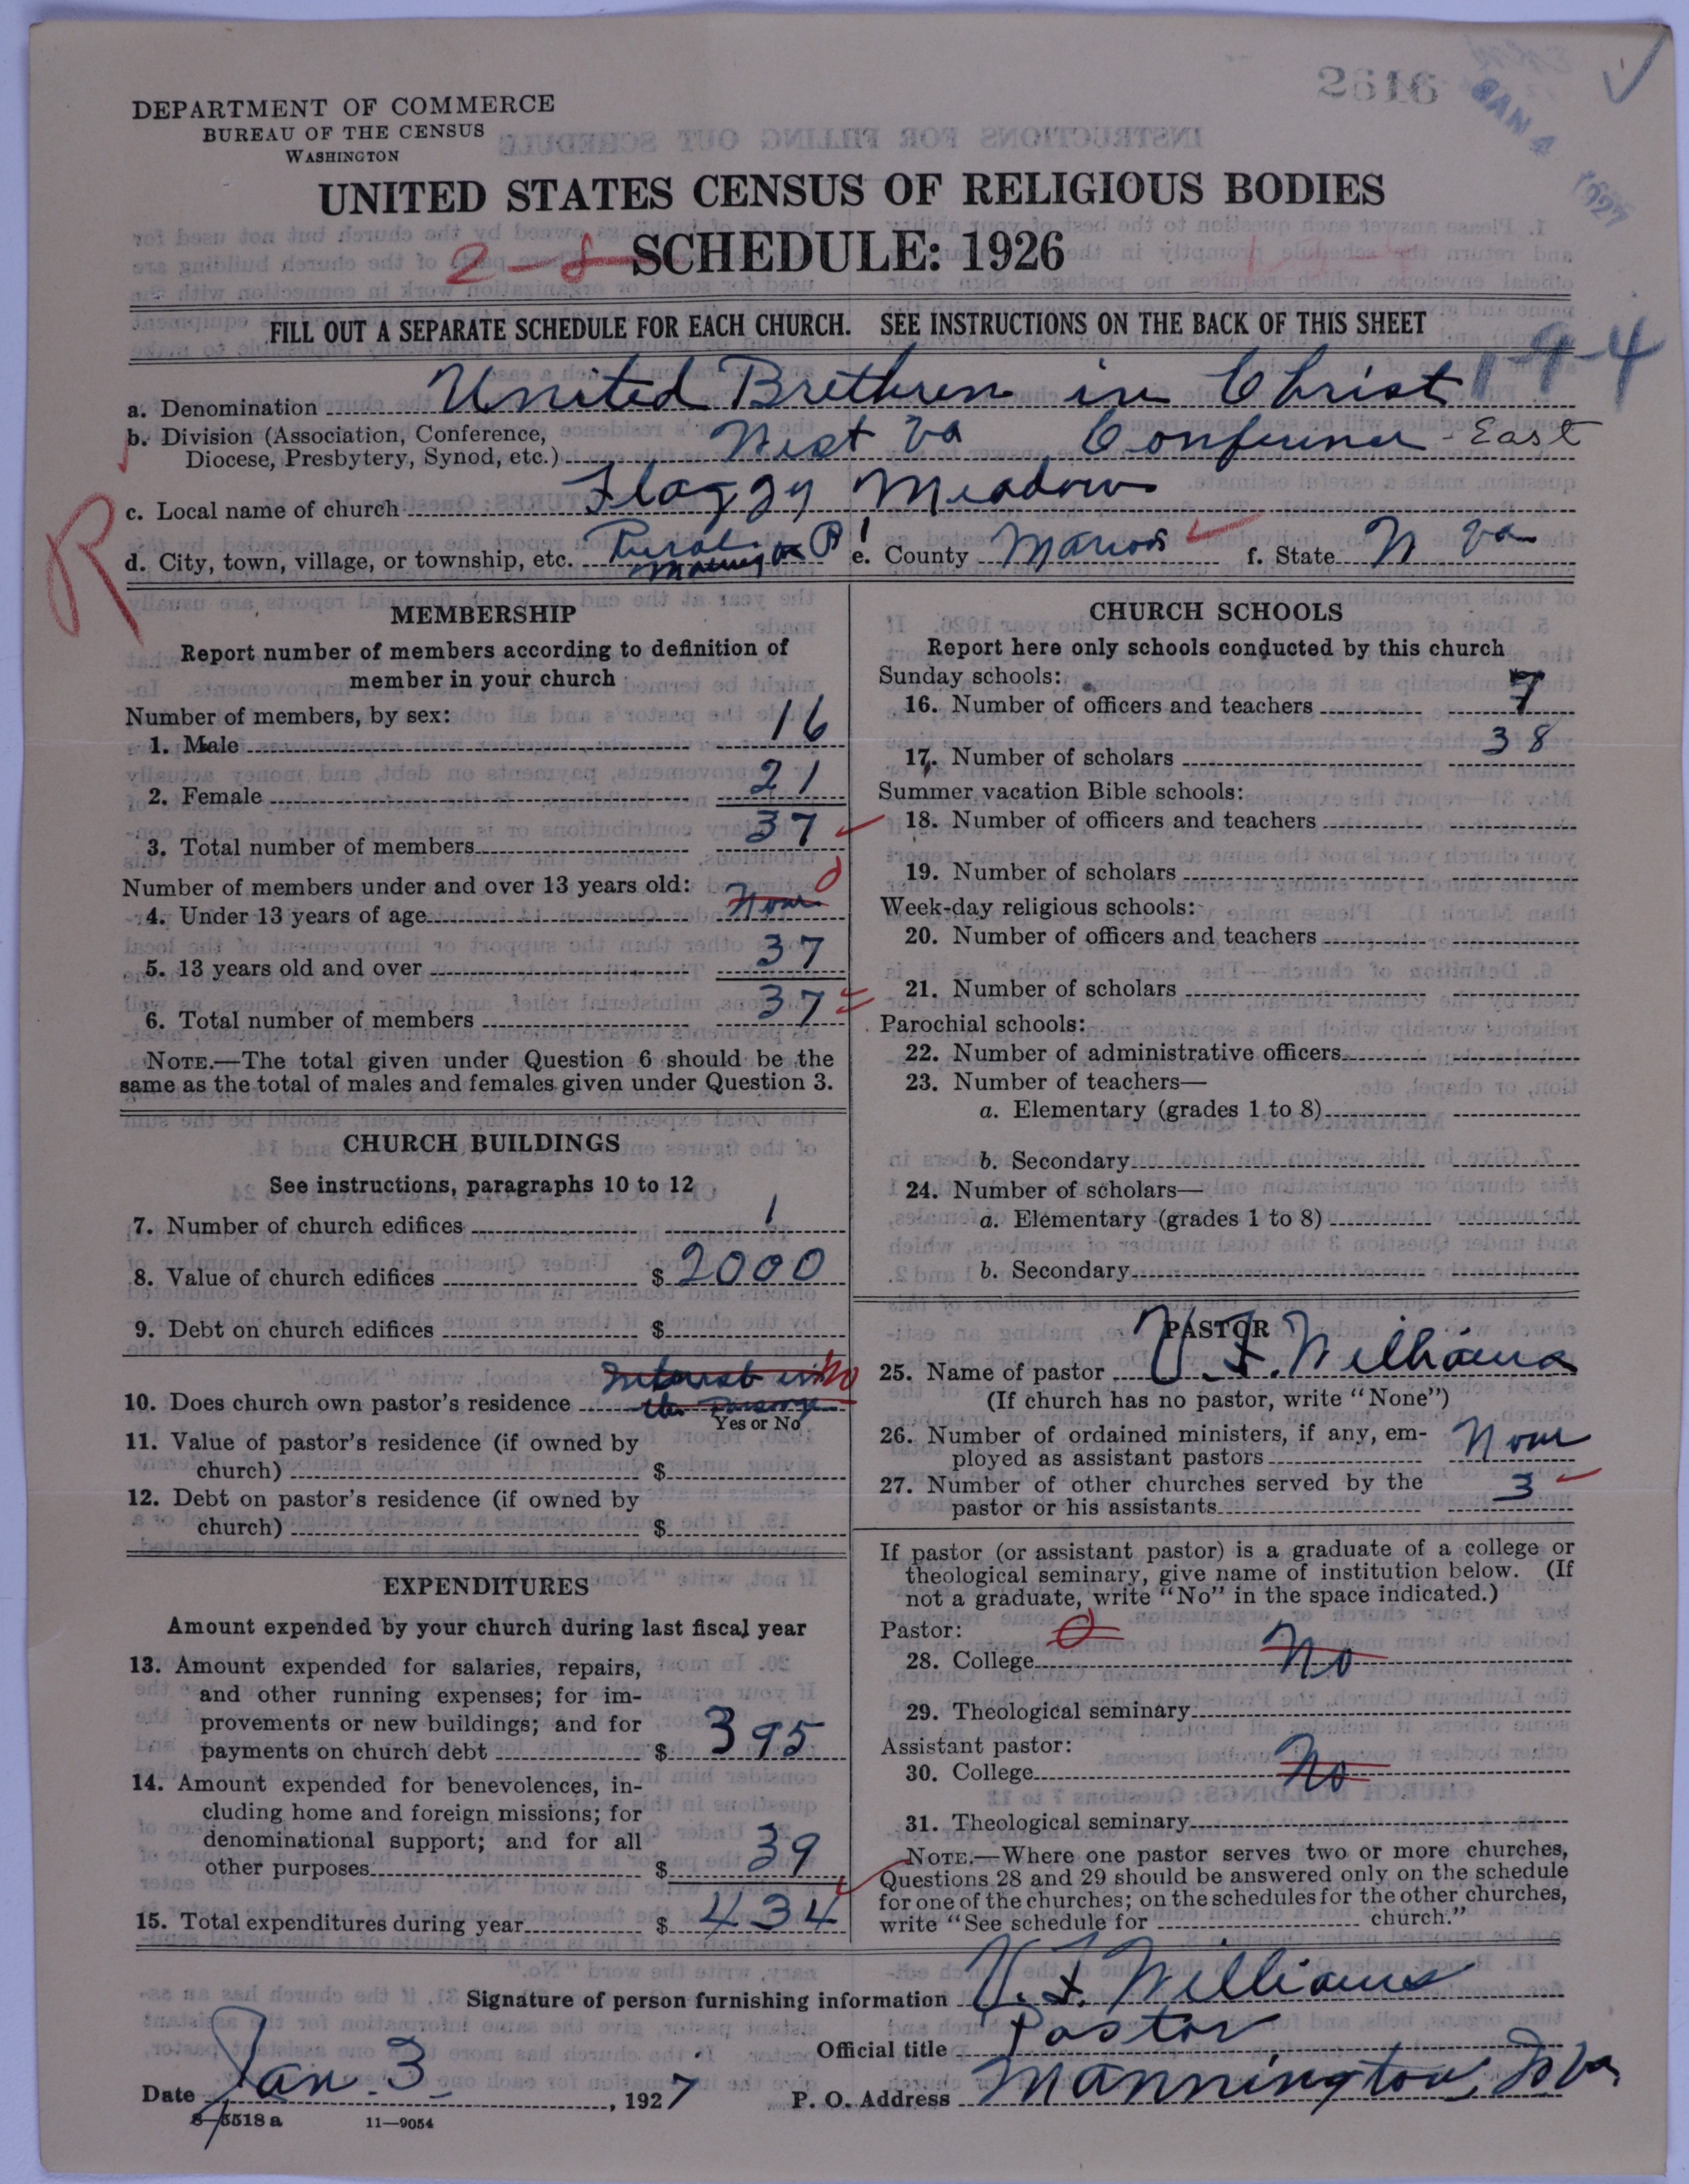 2616
JAN 4 1927
DEPARTMENT OF COMMERCE
BUREAU OF THE CENSUS
WASHINGTON
UNITED STATES CENSUS OF RELIGIOUS BODIES
2-8 SCHEDULE: 1926
FILL OUT A SEPARATE SCHEDULE FOR EACH CHURCH. SEE INSTRUCTIONS ON THE BACK OF THIS SHEET
1-9-4
a. Denomination United Brethren in Christ
b. Division (Association, Conference,
Diocese, Presbytery, Synod, etc.) West Va Conference - East
R
c. Local name of church Flaggy Meadows
d. City, town, village, or township, etc. Rural e. County Marion f. State W Va
MEMBERSHIP
Report number of members according to definition of
member in your church
Number of members, by sex:
1. Male 16
2. Female 21
3. Total number of members 37
Number of members under and over 13 years old:
4. Under 13 years of age None 0
5. 13 years old and over 37
6. Total number of members 37
NOTE.—The total given under Question 6 should be the
same as the total of males and females given under Question 3.
CHURCH BUILDINGS
See instructions, paragraphs 10 to 12
7. Number of church edifices 1
8. Value of church edifices $ 2000
9. Debt on church edifices $
10. Does church own pastor's residence Interest in the Parsonage No
Yes or No
11. Value of pastor's residence (if owned by
church) $
12. Debt on pastor's residence (if owned by
church) $
EXPENDITURES
Amount expended by your church during last fiscal year
13. Amount expended for salaries, repairs,
and other running expenses; for im-
provements or new buildings; and for
payments on church debt $ 395
14. Amount expended for benevolences, in-
cluding home and foreign missions; for
denominational support; and for all
other purposes $ 39
15. Total expenditures during year $ 434
CHURCH SCHOOLS
Report here only schools conducted by this church
Sunday schools:
16. Number of officers and teachers 7
17. Number of scholars 38
Summer vacation Bible schools:
18. Number of officers and teachers
19. Number of scholars
Week-day religious schools:
20. Number of officers and teachers
21. Number of scholars
Parochial schools:
22. Number of administrative officers
23. Number of teachers—
a. Elementary (grades 1 to 8)
b. Secondary
24. Number of scholars—
a. Elementary (grades 1 to 8)
b. Secondary
PASTOR
25. Name of pastor U. F. Williams
(If church has no pastor, write "None")
26. Number of ordained ministers, if any, em-
ployed as assistant pastors None
27. Number of other churches served by the
pastor or his assistants 3
If pastor (or assistant pastor) is a graduate of a college or
theological seminary, give name of institution below. (If
not a graduate, write "No" in the space indicated.)
Pastor: 0
28. College No
29. Theological seminary
Assistant pastor:
30. College No
31. Theological seminary
NOTE.—Where one pastor serves two or more churches,
Questions 28 and 29 should be answered only on the schedule
for one of the churches; on the schedules for the other churches,
write "See schedule for church."
Signature of person furnishing information U. F. Williams
Official title Pastor
Date Jan. 3, 1927 P. O. Address Mannington, W Va.
8-5518 a 11—9054